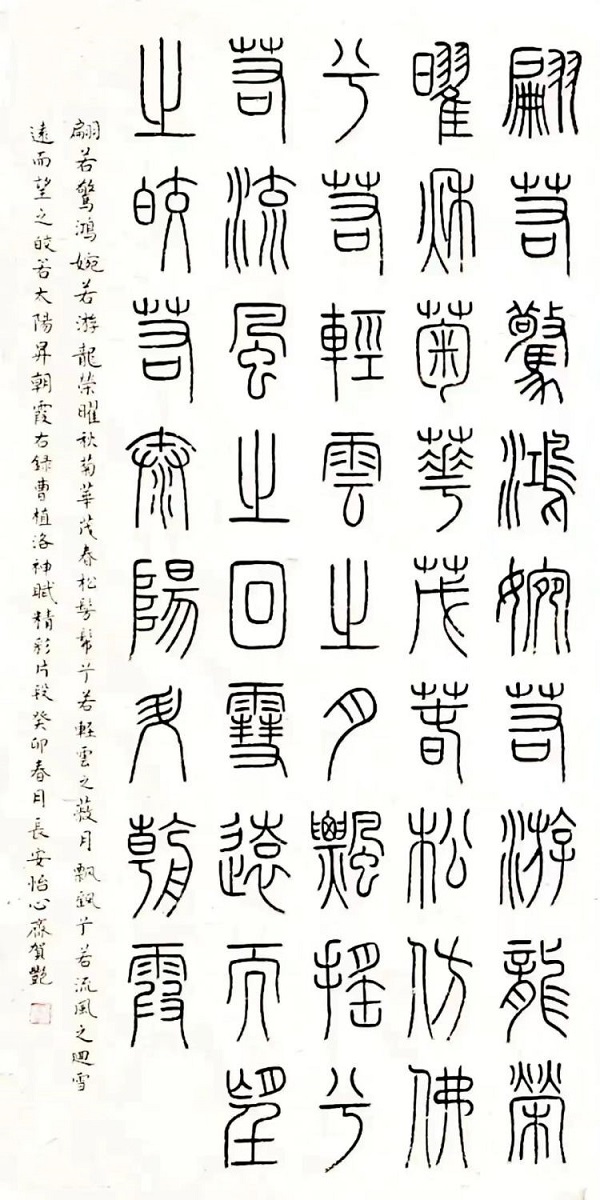 翩若驚鴻婉若游龍榮
曜秋菊華茂春松仿佛
兮若輕雲之月飄搖兮
若流風之回雪遠而望
之皎若泰陽升朝霞
翩若驚鴻婉若游龍榮曜秋菊華茂春松髣髴兮若輕雲之蔽月飄颻兮若流風之迴雪
遠而望之皎若太陽昇朝霞右録曹植洛神賦精彩片段癸卯春月長安怡心齋賀艷